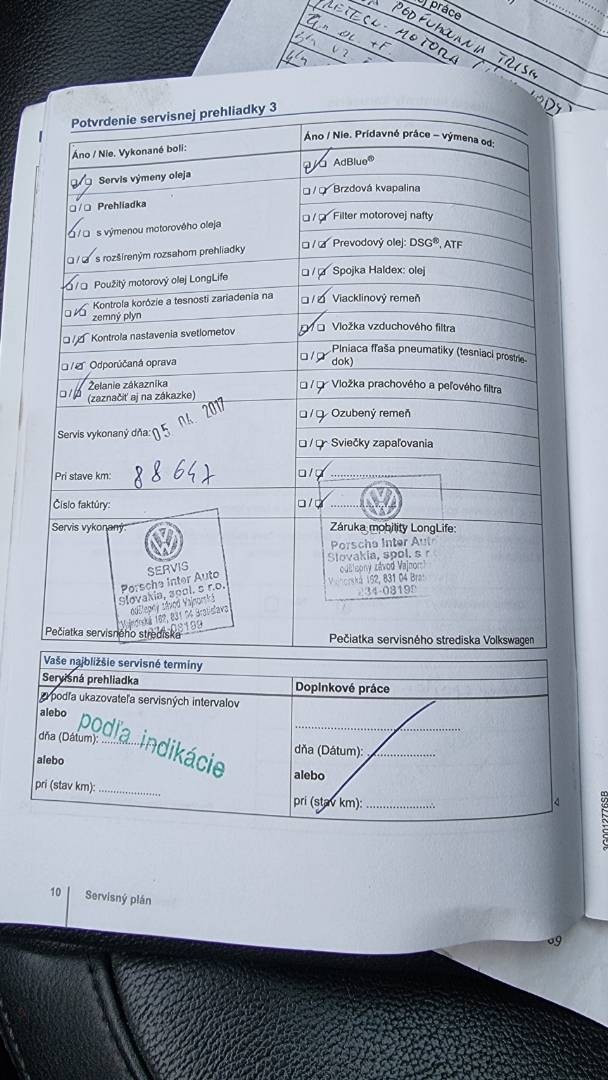 práce
PODFUKOVANIA TRISK
DETEKC. MOTORA
Potvrdenie servisnej prehliadky 3
Áno / Nie. Vykonané boli:
Servis výmeny oleja
Prehliadka
s výmenou motorového oleja
s rozšíreným rozsahom prehliadky
Použitý motorový olej LongLife
Kontrola korózie a tesnosti zariadenia na
zemný plyn
Kontrola nastavenia svetlometov
Odporúčaná oprava
Želanie zákazníka
(zaznačiť aj na zákazke)
Servis vykonaný dňa: 05. 04. 2017
Pri stave km: 88647
Číslo faktúry:
Servis vykonaný:
SERVIS
Porsche Inter Auto
Slovakia, spol. s r.o.
odštepný závod Vajnorská
Vajnorská 162, 831 04 Bratislava
234-08199
Pečiatka servisného strediska
Áno / Nie. Prídavné práce – výmena od:
AdBlue®
Brzdová kvapalina
Filter motorovej nafty
Prevodový olej: DSG®, ATF
Spojka Haldex: olej
Viacklinový remeň
Vložka vzduchového filtra
Plniaca fľaša pneumatiky (tesniaci prostrie-
dok)
Vložka prachového a peľového filtra
Ozubený remeň
Sviečky zapaľovania
Záruka mobility LongLife:
Porsche Inter Auto
Slovakia, spol. s r.
odštepný závod Vajnors
Vajnorská 162, 831 04 Bra
234-08199
Pečiatka servisného strediska Volkswagen
Vaše najbližšie servisné termíny
Servisná prehliadka
podľa ukazovateľa servisných intervalov
alebo
dňa (Dátum):
podľa indikácie
alebo
pri (stav km):
Doplnkové práce
dňa (Dátum):
alebo
pri (stav km):
10
Servisný plán
3G0012776SB
69